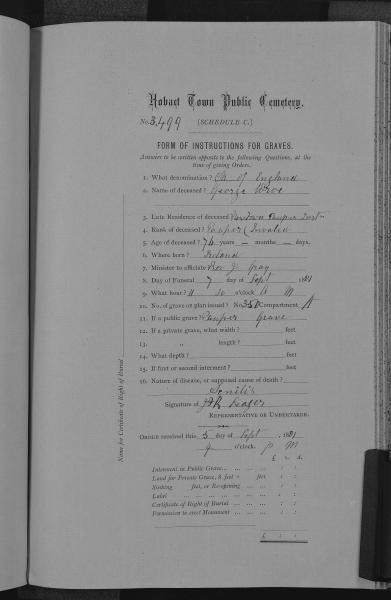 Hobart Town Public Cemetery.
No. 3,499 (SCHEDULE C.)
FORM OF INSTRUCTIONS FOR GRAVES.
Answers to be written opposite to the following Questions, at the
time of giving Orders.
1. What denomination? Ch of England
2. Name of deceased? George
3. Late Residence of deceased Newtown Pauper
4. Rank of deceased? Pauper (Invalid
5. Age of deceased? 76 years — months — days.
6. Where born? Ireland
7. Minister to officiate Rev J. Gray
8. Day of Funeral 7 day of Sept 1881
9. What hour? 11 o'clock A M
10. No. of grave on plan issued? No. 350 Compartment A
11. If a public grave? Pauper Grave
12. If a private grave, what width? feet
13. „ length? feet
14. What depth? feet
15. If first or second interment? feet
16. Nature of disease, or supposed cause of death?
Senilis
Signature of
REPRESENTATIVE OR UNDERTAKER.
ORDER received this 5 day of Sept 1881
o'clock, P M
£ s. d.
Interment in Public Grave... ... ... ... : :
Land for Private Grave, 8 feet × feet : :
Sinking feet, or Re-opening ... ... : :
Label ... ... ... ... ... ... : :
Certificate of Right of Burial ... ... ... : :
Permission to erect Monument ... ... ... : :
£ : :
Name for Certificate of Right of Burial